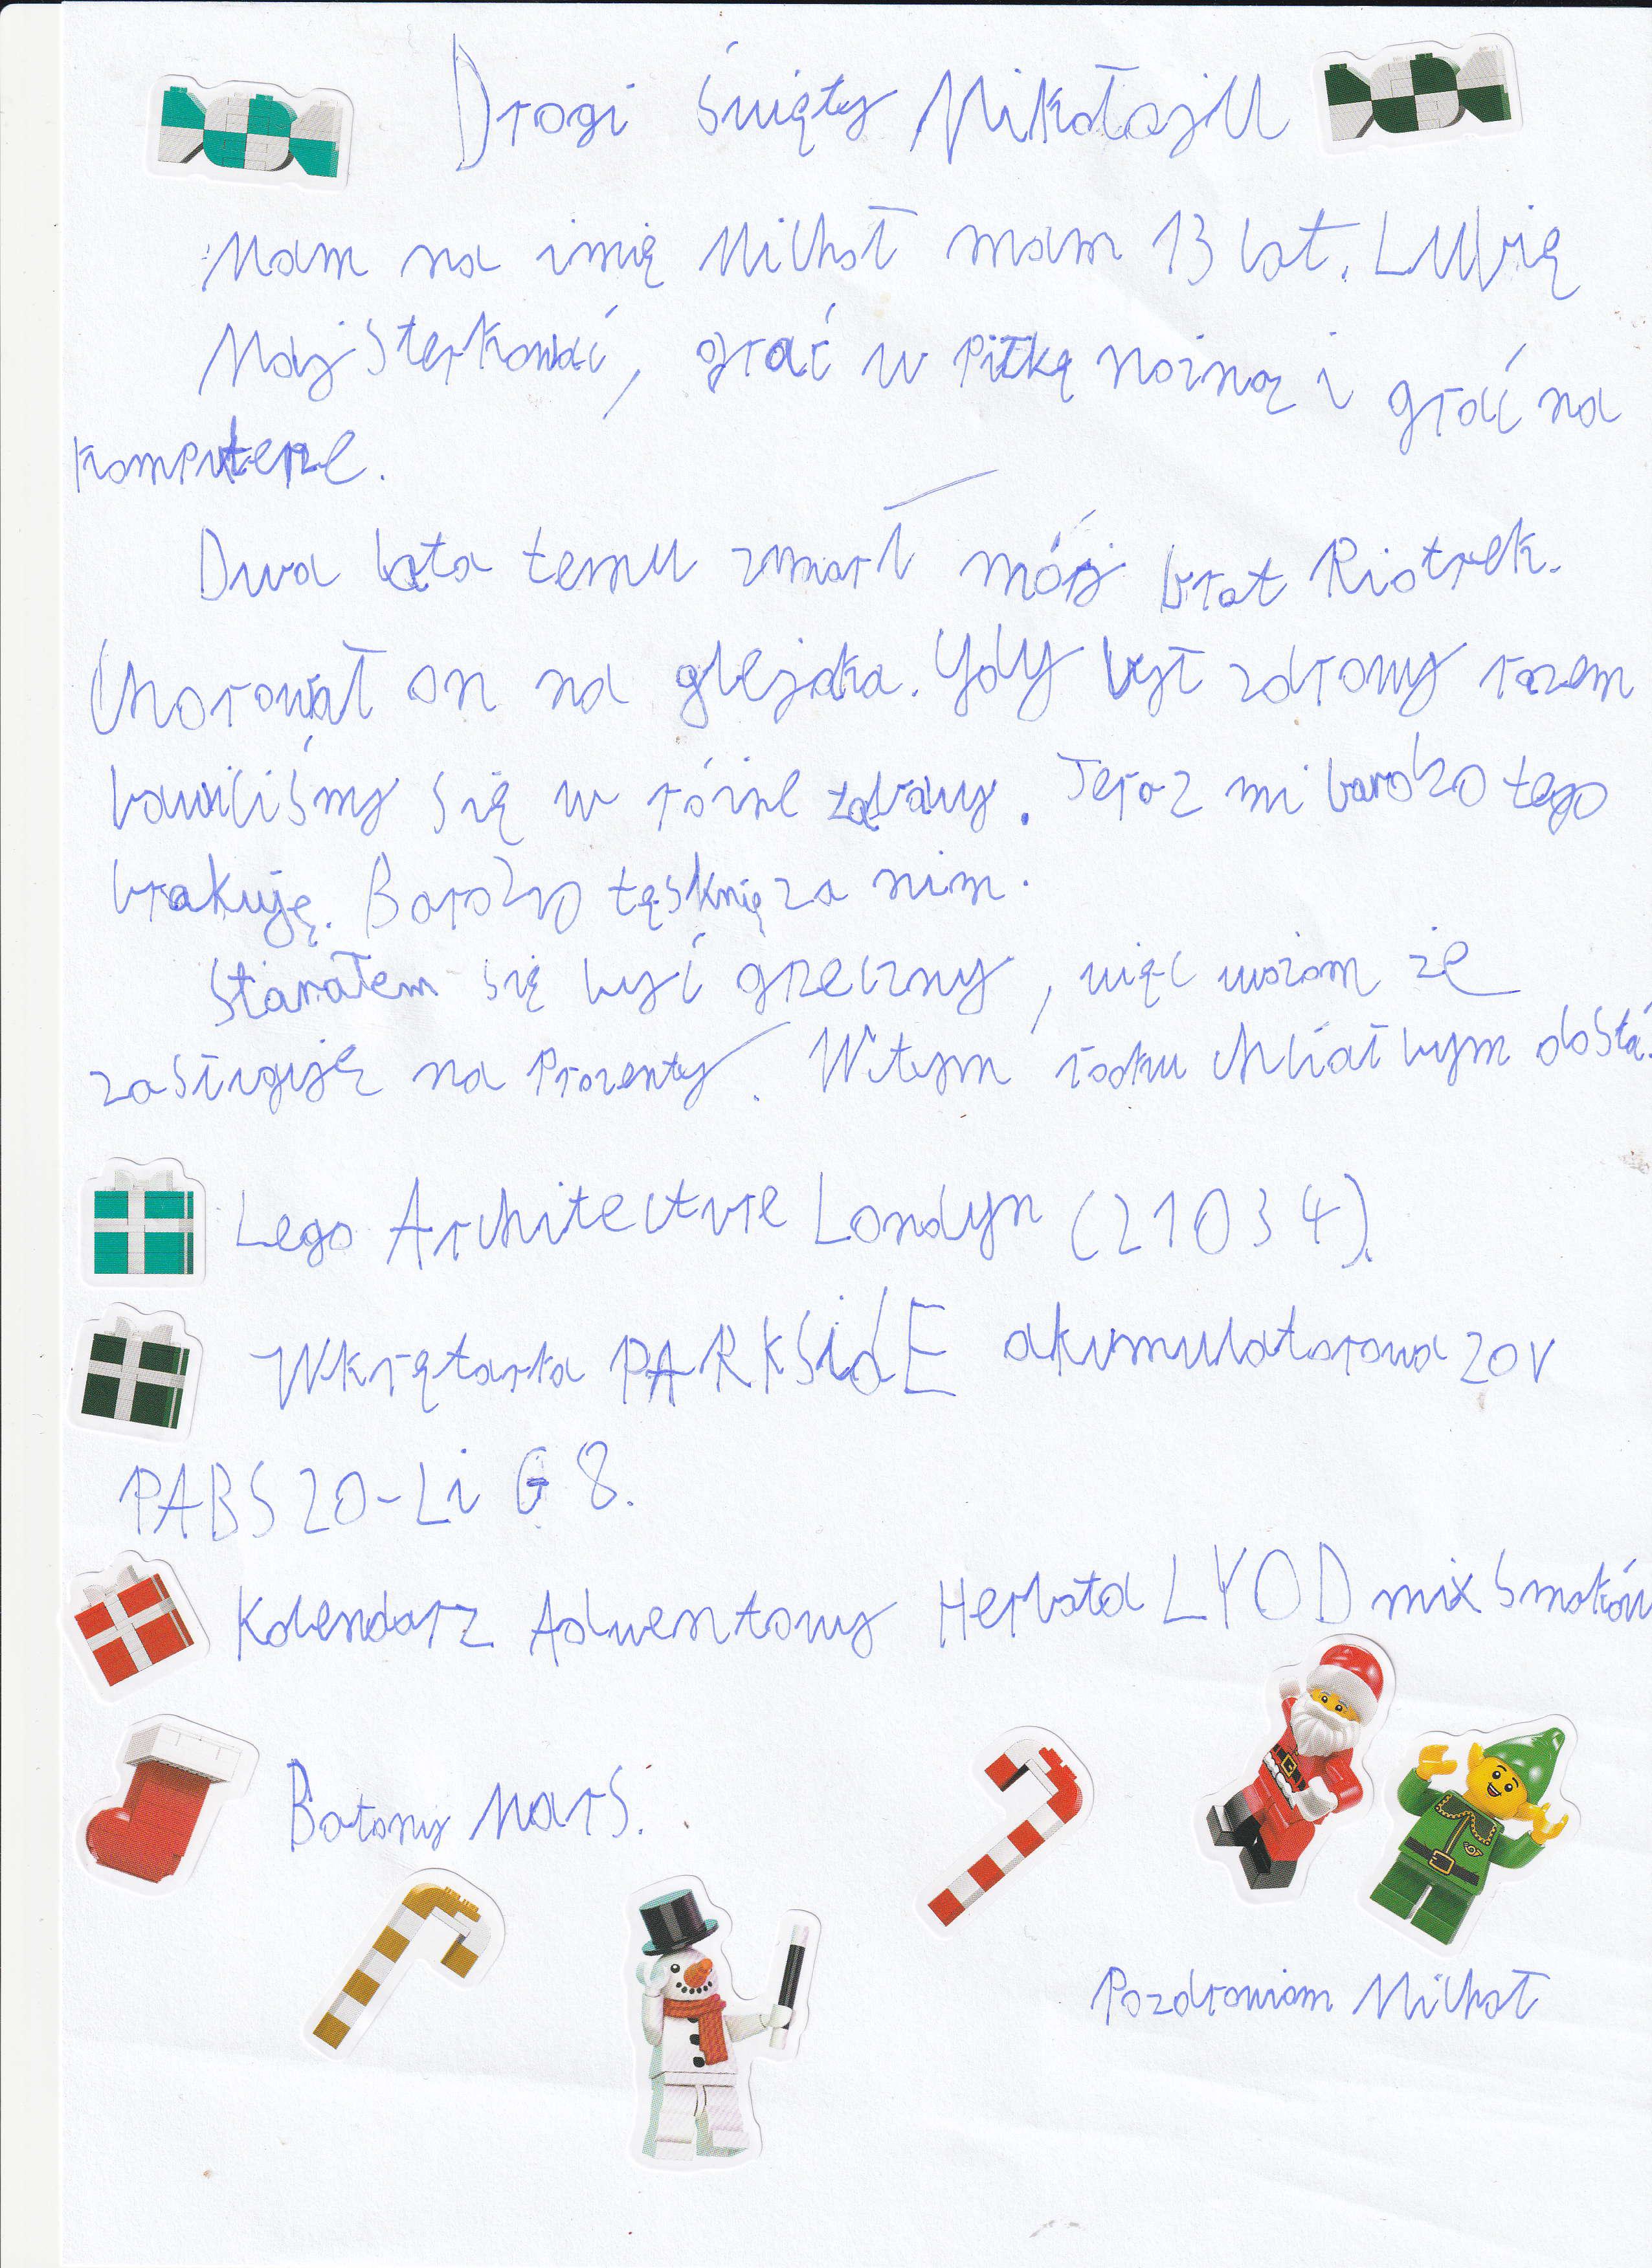 Drogi Święty MikołajU
Mam na imię Michał mam 13 lat. LUbię
Majsterkować, grać w Piłkę nożną i grać na
komputerze.
Dwa lata temu zmarł mój brat Piotrek.
Chorował on na glejaka. Gdy był zdrowy razem
bawiliśmy się w różne zabawy. Teraz mi bardzo tego
brakuję. Bardzo tęsknię za nim.
Starałem się być grzeczny, więc uważam że
zasługuję na Prezenty. W tym roku chciał bym dosta
Lego Architecture Londyn (21034).
Wkrętarka PARKSidE akumulatorowa 20V
PABS 20-Li G8.
Kalendarz Adwentowy Herbata LYOD mix Smaków
Batony Mars.
Pozdrawiam Michał